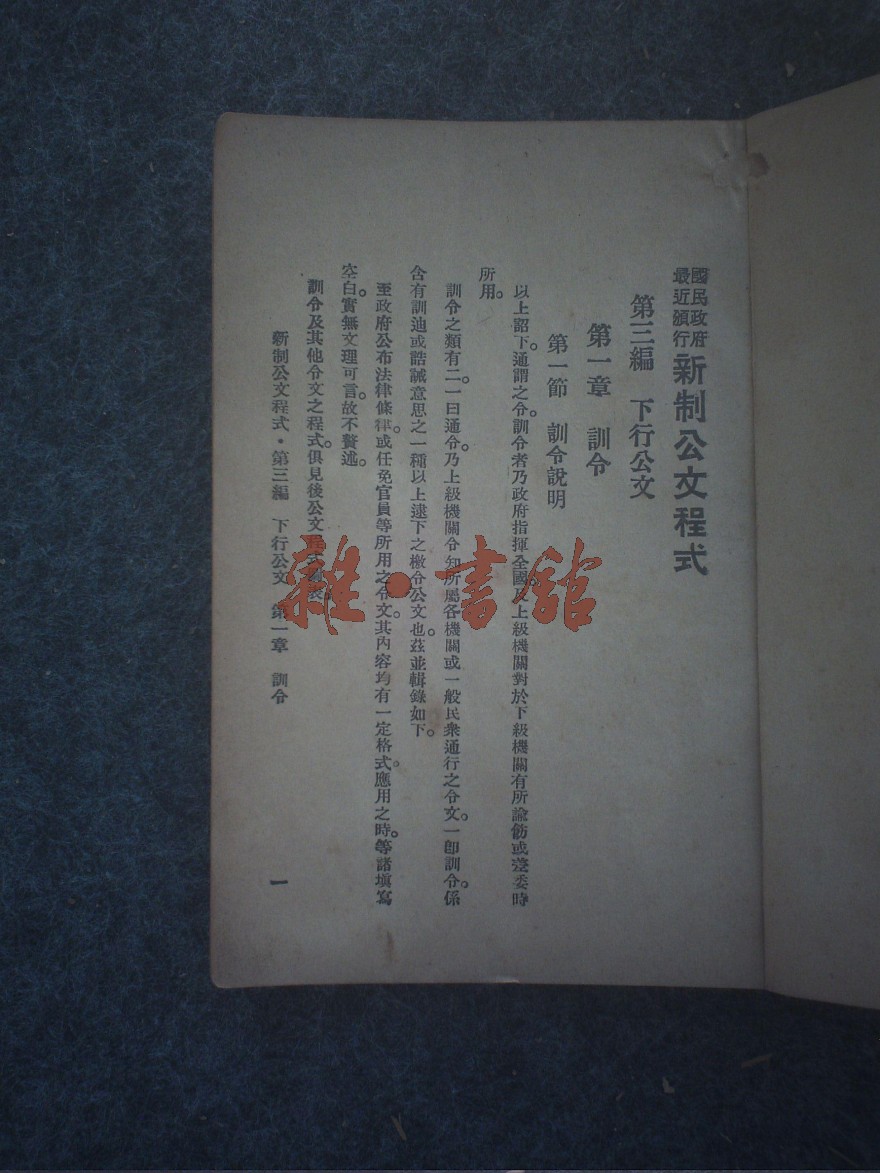 國民政府
最近頒行
新制公文程式
第三編　下行公文
第一章　訓令
第一節　訓令說明
以上詔下。通謂之令。訓令者乃政府指揮全國。及上級機關對於下級機關有所諭飭或委時
所用。
訓令之類有二。一曰通令。乃上級機關令知所屬各機關或一般民衆通行之令文。一卽訓令。係
含有訓迪或誥誡意思之一種以上逮下之檄令公文也。茲並輯錄如下。
至政府公布法律條律。或任免官員等所用之令文。其內容均有一定格式。應用之時。等諸塡寫
空白。實無文理可言。故不贅述。
訓令及其他令文之程式。俱見後公文程式表。
新制公文程式・第三編　下行公文　第一章　訓令
一
雜・書館